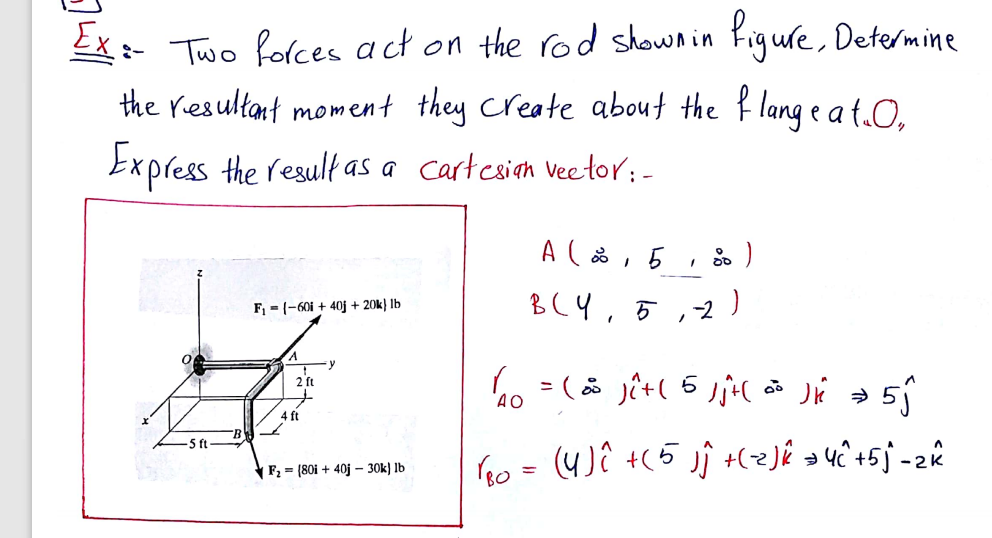 Ex :- Two forces act on the rod shown in figure, Determine
the resultant moment they create about the flange at O,
Express the result as a cartesian vector:-
A ( 0 , 5 , 0 )
B ( 4 , 5 , -2 )
z
F₁ = {-60i + 40j + 20k} lb
O
A
y
2 ft
x
4 ft
B
5 ft
F₂ = {80i + 40j − 30k} lb
r AO = ( 0 )î + ( 5 )ĵ + ( 0 )k̂ ⇒ 5ĵ
r BO = (4)î + (5)ĵ + (-2)k̂ ⇒ 4î + 5ĵ - 2k̂